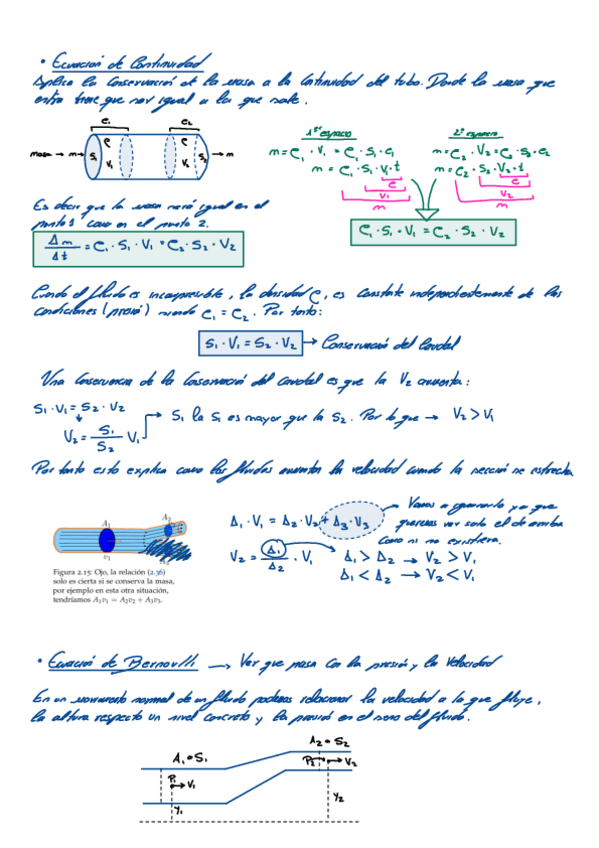 • Ecuación de Continuidad
Aplica la conservación de la masa a la continuidad del tubo. Donde la masa que
entra tiene que ser igual a la que sale.
e₁ e₂
masa → m → S₁ ρ V₁ V₂ ρ S₂ → m
1ᵉʳ espacio
m = ρ₁ · V₁ = ρ₁ · S₁ · e₁
m = ρ₁ · S₁ · V₁ · t
e
V₁
m
2º espacio
m = ρ₂ · V₂ = ρ₂ · S₂ · e₂
m = ρ₂ · S₂ · V₂ · t
e
V₂
m
ρ₁ · S₁ · V₁ = ρ₂ · S₂ · V₂
Es decir que la masa será igual en el
punto 1 como en el punto 2.
Δm/Δt = ρ₁ · S₁ · V₁ = ρ₂ · S₂ · V₂
Cuando el fluido es incompresible, la densidad ρ, es constate independientemente de las
condiciones (presió) siendo ρ₁ = ρ₂. Por tanto:
S₁ · V₁ = S₂ · V₂ → Conservación del Caudal
Una consecuencia de la conservació del caudal es que la V₂ aumenta:
S₁ · V₁ = S₂ · V₂
V₂ = S₁/S₂ V₁ → Si la S₁ es mayor que la S₂. Por lo que → V₂ > V₁
Por tanto esto explica como los fluidos aumentan la velocidad cuando la sección se estrecha
A₁
v₁
A₂
Figura 2.15: Ojo, la relación (2.36)
solo es cierta si se conserva la masa,
por ejemplo en esta otra situación,
tendríamos A₁v₁ = A₂v₂ + A₃v₃.
A₁ · V₁ = A₂ · V₂ + A₃ · V₃
V₂ = A₁/A₂ · V₁
A₁ > A₂ → V₂ > V₁
A₁ < A₂ → V₂ < V₁
Vamos a ignorarlo ya que
queremos ver solo el de arriba
como si no existiera.
• Ecuación de Bernoulli → Ver que pasa con la presión y la velocidad
En un movimiento normal de un fluido podemos relacionar la velocidad a la que fluye,
la altura respecto un nivel concreto y la presión en el seno del fluido.
A₁ o S₁
A₂ o S₂
P₁ → V₁
P₂ → V₂
y₁
y₂